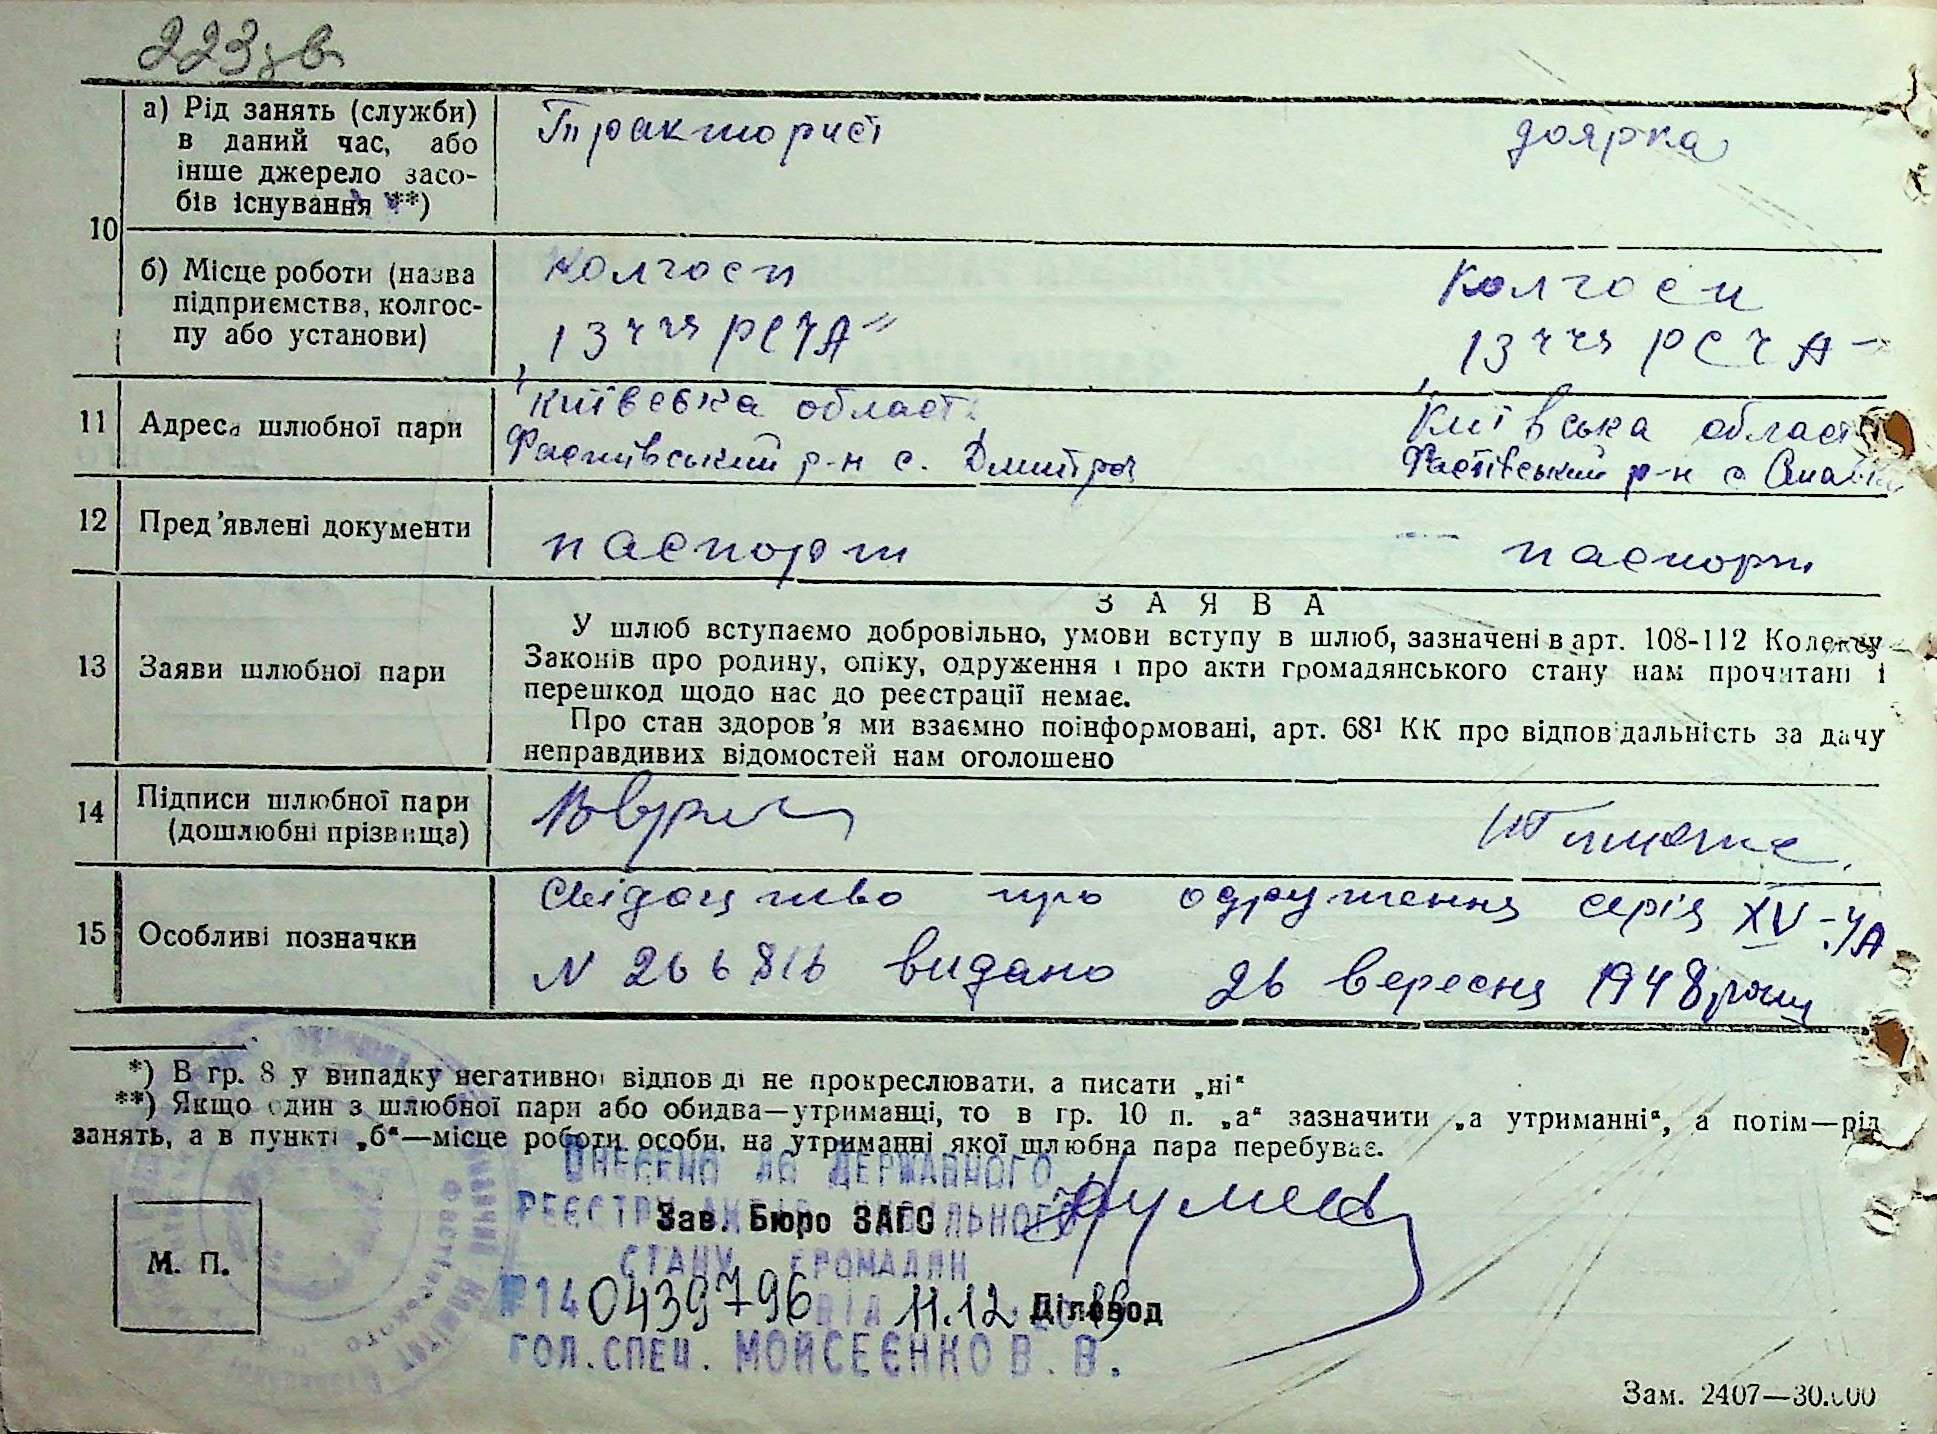 223зв
10
а) Рід занять (служби) в даний час, або інше джерело засобів існування **)
Тракторист
доярка
б) Місце роботи (назва підприємства, колгоспу або установи)
Колгосп
Колгосп
„13 ччя РСЧА"
„13 ччя РСЧА"
11
Адреса шлюбної пари
Київська область
Київська область
Фастівський р-н с. Дмитрів
Фастівський р-н с
12
Пред'явлені документи
паспорт
паспорт
ЗАЯВА
13
Заяви шлюбної пари
У шлюб вступаємо добровільно, умови вступу в шлюб, зазначені в арт. 108-112 Кодексу
Законів про родину, опіку, одруження і про акти громадянського стану нам прочитані і
перешкод щодо нас до реєстрації немає.
Про стан здоров'я ми взаємно поінформовані, арт. 68¹ КК про відповідальність за дачу
неправдивих відомостей нам оголошено
14
Підписи шлюбної пари
(дошлюбні прізвища)
15
Особливі позначки
Свідоцтво про одруження серія XV-УА
N 266816 видано 26 вересня 1948 року
*) В гр. 8 у випадку негативної відповіді не прокреслювати, а писати „ні"
**) Якщо один з шлюбної пари або обидва—утриманці, то в гр. 10 п. „а" зазначити „а утриманні", а потім—рід
занять, а в пункті „б"—місце роботи особи, на утриманні якої шлюбна пара перебуває.
ВНЕСЕНО ДО ДЕРЖАВНОГО
РЕЄСТРУ АКТІВ ЦИВІЛЬНОГО
Зав. Бюро ЗАГС
СТАНУ ГРОМАДЯН
М. П.
№140439796 ВІД 11.12.2019
Діловод
ГОЛ. СПЕЦ. МОЙСЕЄНКО В. В.
Зам. 2407—30.000